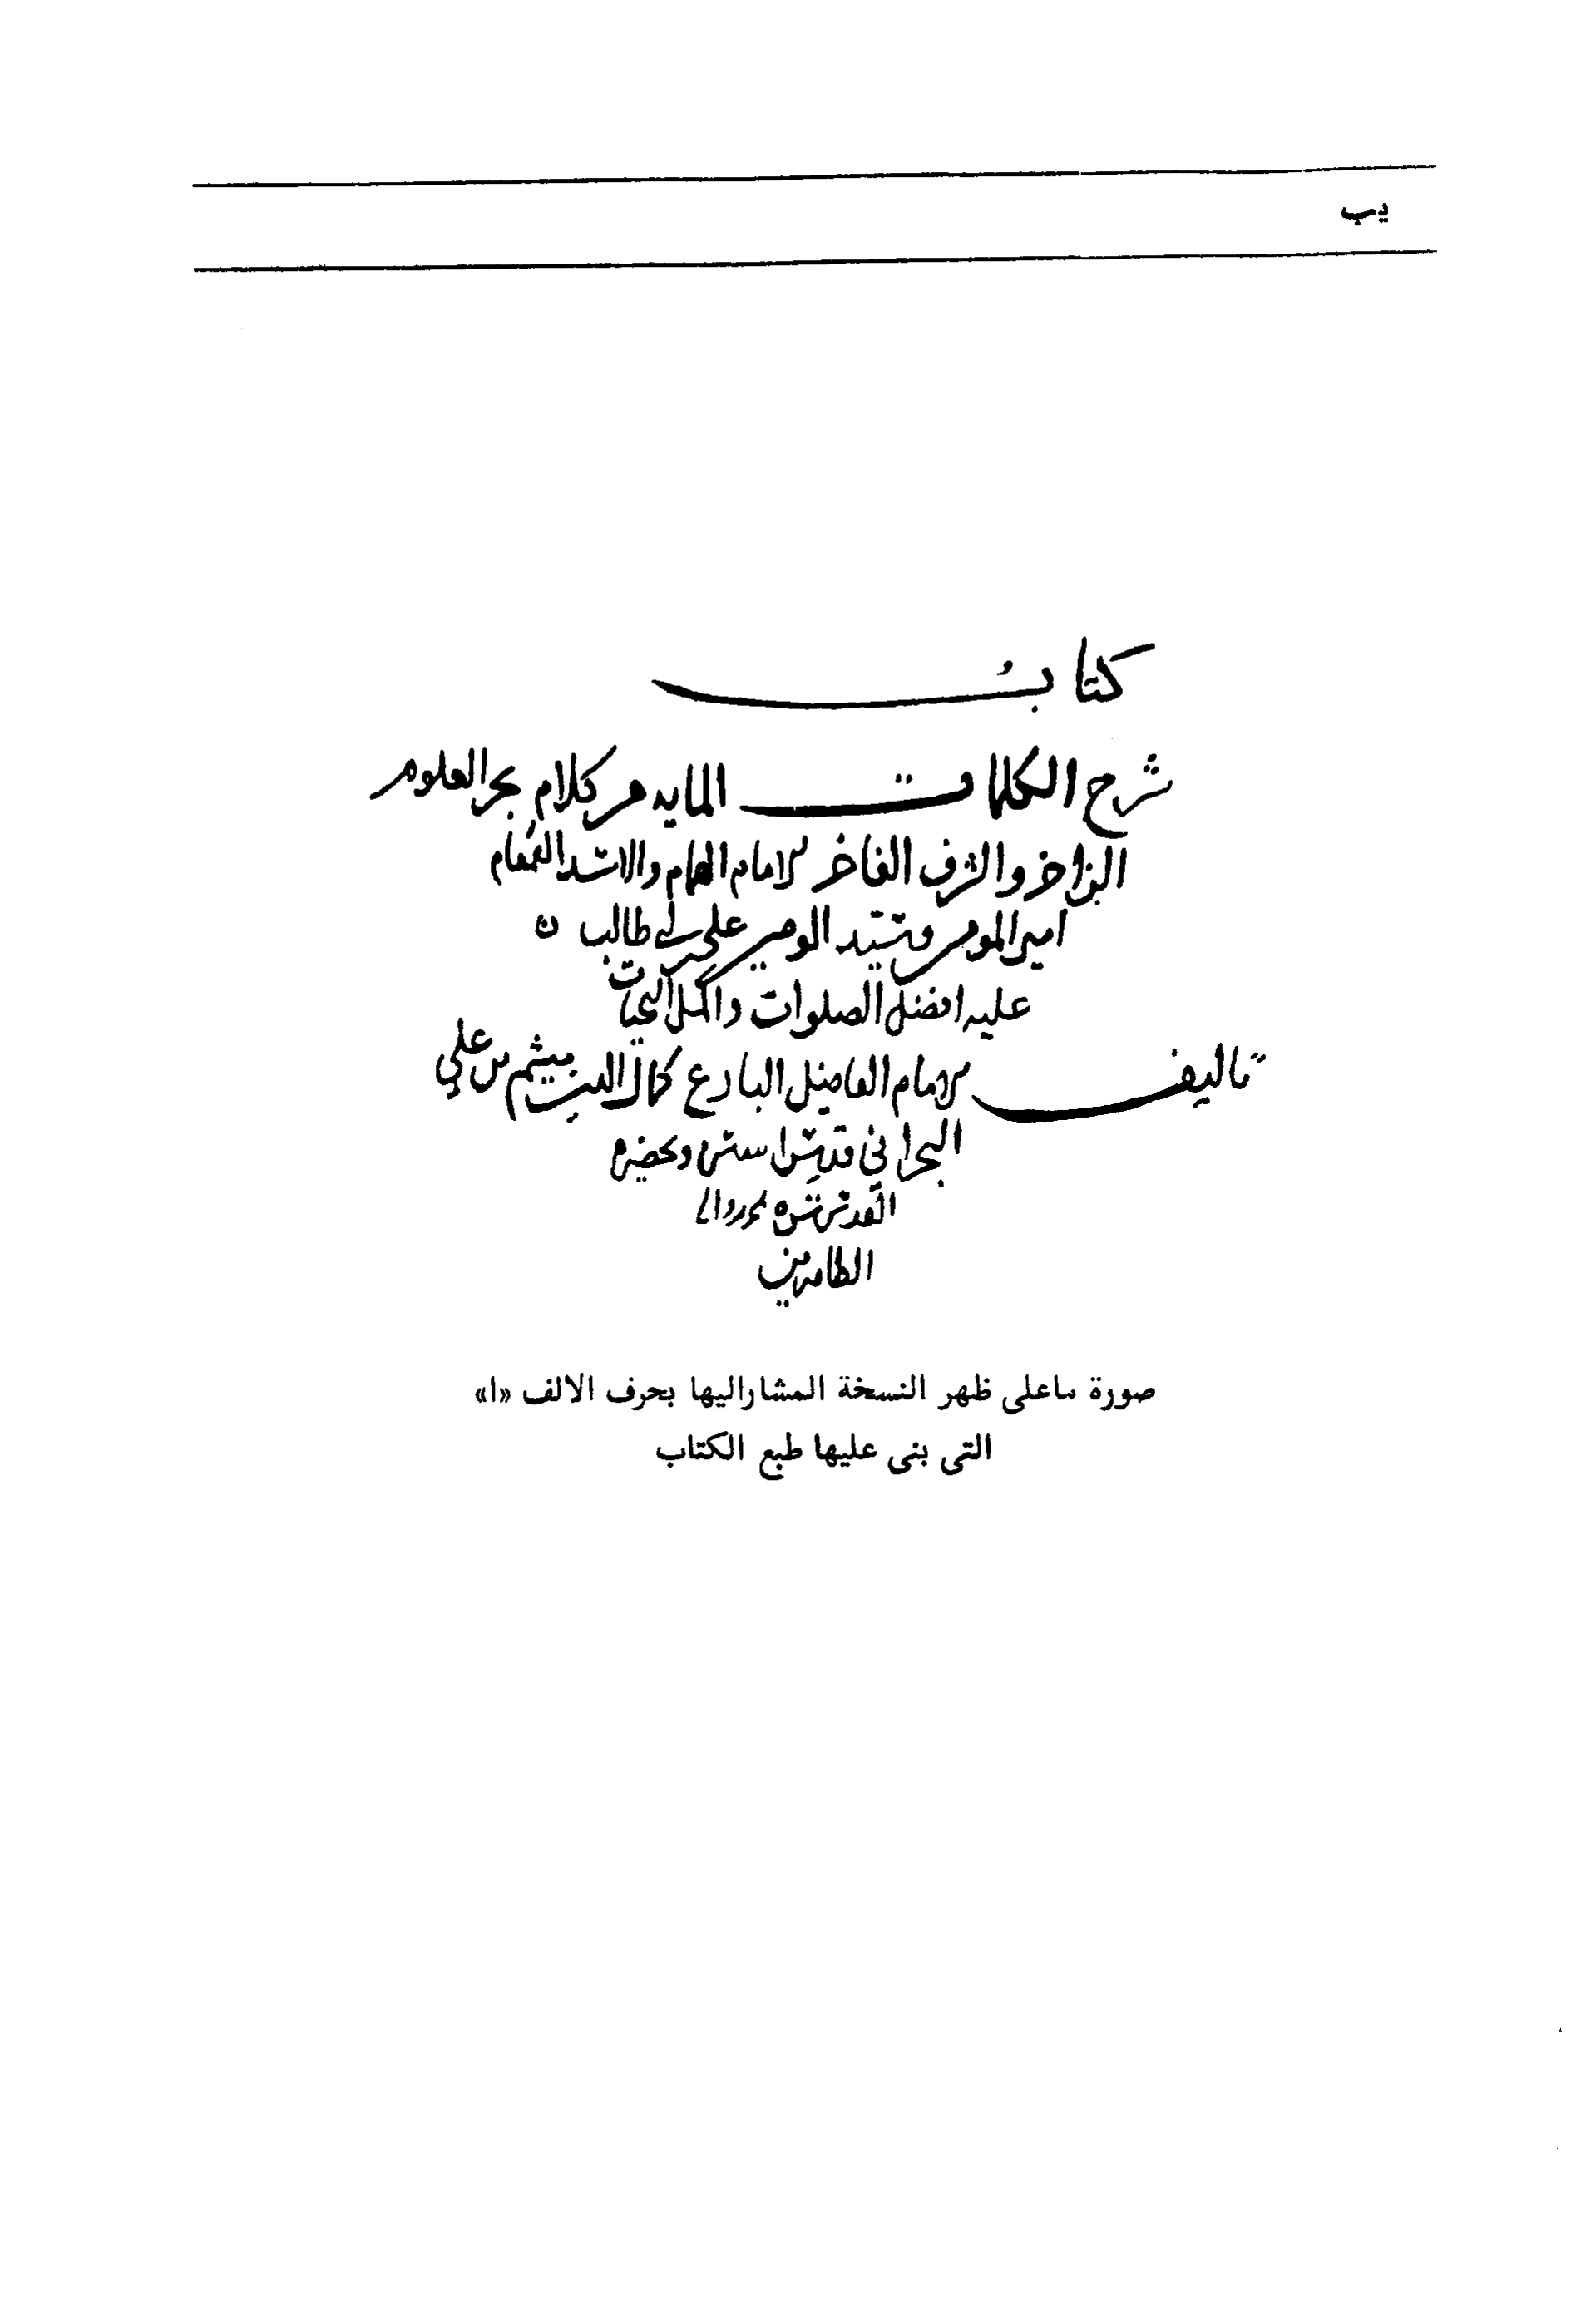 يب
كتابُ
شرح الكلمات المايه من كلام بحر العلوم
الزاخر والشرف الفاخر الامام الهمام والاسد القمقام
امير المومنين وسيد الوصيين علي بن ابي طالب
عليه افضل الصلوات واكمل التحيات
تاليف الامام الفاضل البارع كمال الدين ميثم بن علي
البحراني قدس الله سره
الطاهرين
صورة ماعلى ظهر النسخة المشاراليها بحرف الالف «ا»
التى بنى عليها طبع الكتاب